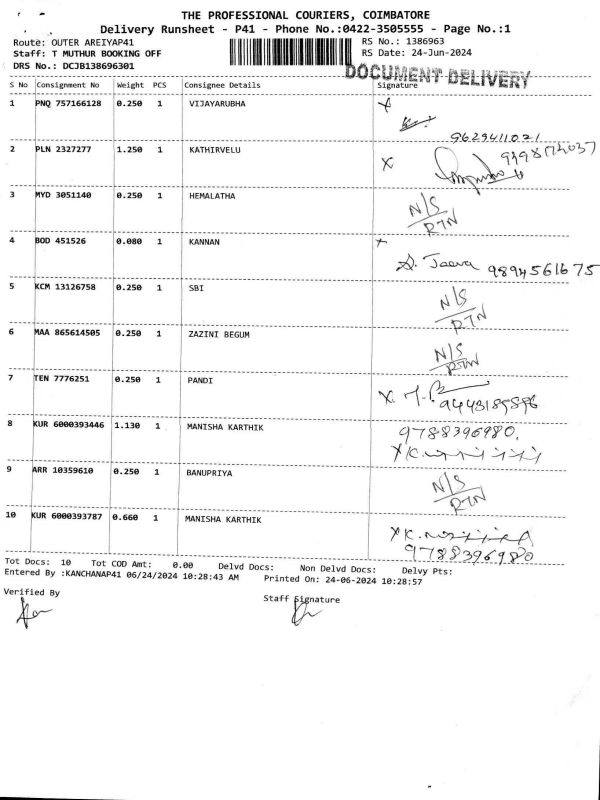 THE PROFESSIONAL COURIERS, COIMBATORE
Delivery Runsheet - P41 - Phone No.:0422-3505555 - Page No.:1
Route: OUTER AREIYAP41 RS No.: 1386963
Staff: T MUTHUR BOOKING OFF RS Date: 24-Jun-2024
DRS No.: DCJB138696301 DOCUMENT DELIVERY
S No Consignment No Weight PCS Consignee Details Signature
1 PNQ 757166128 0.250 1 VIJAYARUBHA X
9629411021
2 PLN 2327277 1.250 1 KATHIRVELU X
3 MYD 3051140 0.250 1 HEMALATHA N/S
RTN
4 BOD 451526 0.080 1 KANNAN
S. Jeeva 9894561675
5 KCM 13126758 0.250 1 SBI N/S
RTN
6 MAA 865614505 0.250 1 ZAZINI BEGUM N/S
RTN
7 TEN 7776251 0.250 1 PANDI X.
8 KUR 6000393446 1.130 1 MANISHA KARTHIK 9788396980.
9 ARR 10359610 0.250 1 BANUPRIYA N/S
RTN
10 KUR 6000393787 0.660 1 MANISHA KARTHIK
9788396980
Tot Docs: 10 Tot COD Amt: 0.00 Delvd Docs: Non Delvd Docs: Delvy Pts:
Entered By :KANCHANAP41 06/24/2024 10:28:43 AM Printed On: 24-06-2024 10:28:57
Verified By Staff Signature